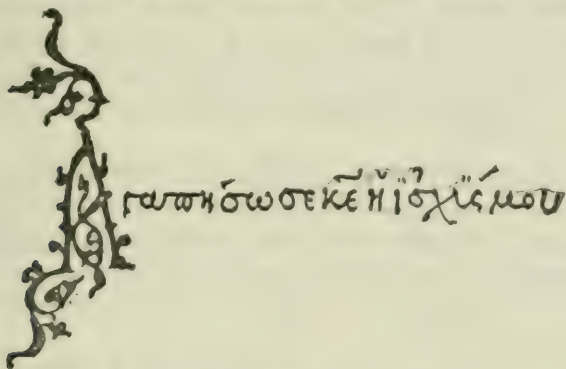 Αγαπήσω σε κ̅ε̅ ἡ ἰσχϊς μου